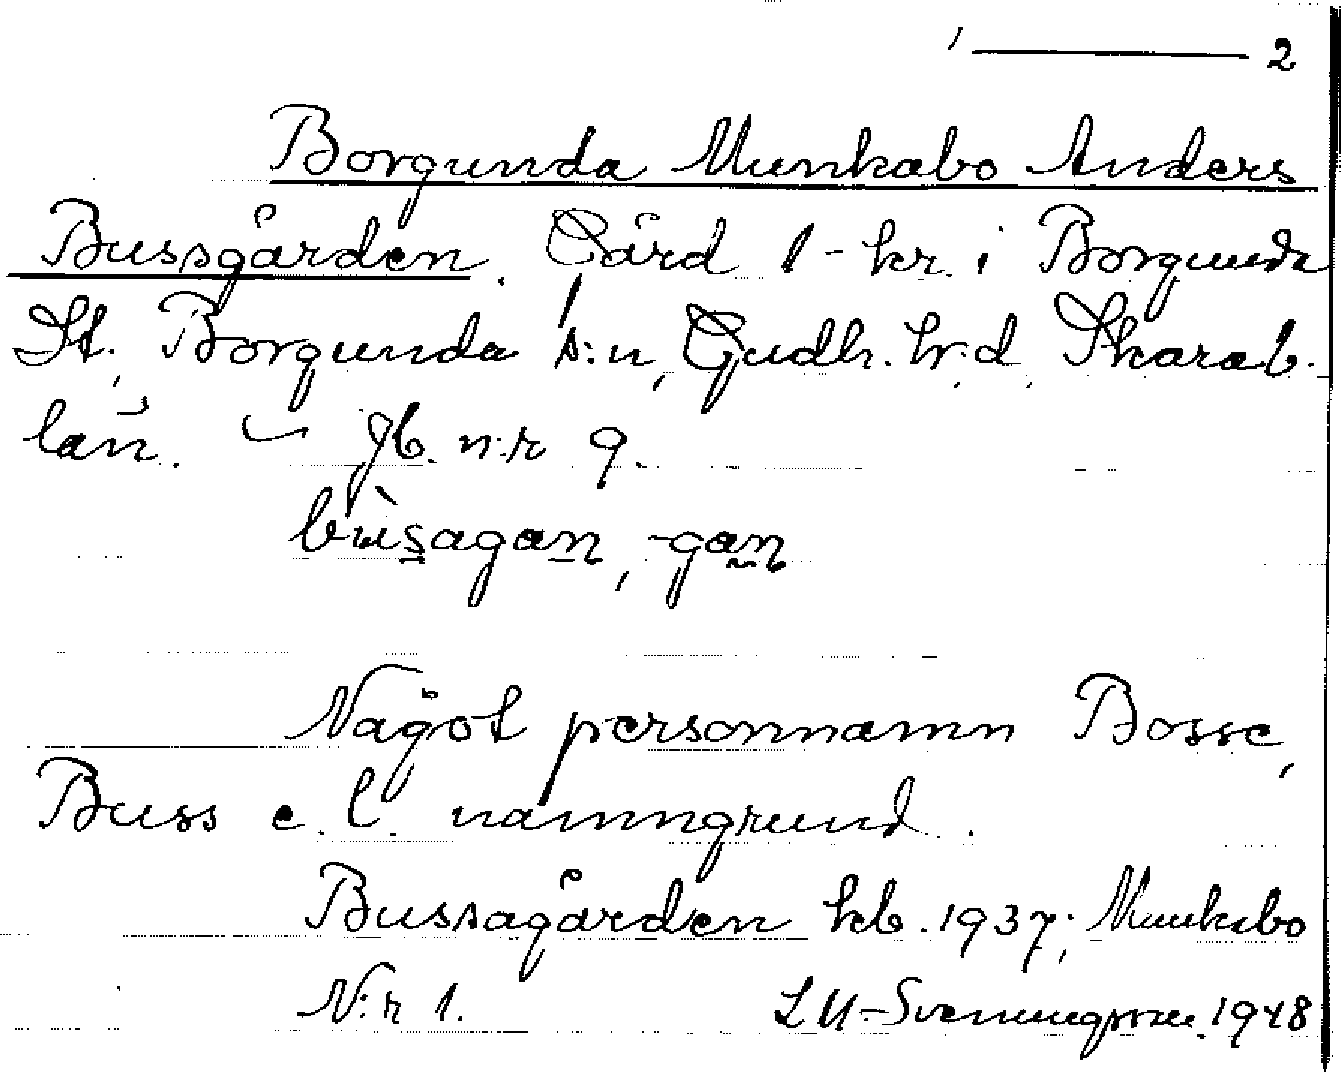 2
Borgunda Munkabo Anders
Bussgården. Gård 1-kr. i Borgunda
St., Borgunda s:n, Gudh. h:d, Skarab.
län. Jb. n:r 9.
bùsagan, -gan
Något personnamn Bosse,
Buss e. l. namngrund.
Bussagården kb. 1937; Munkabo
N:r 1.
1948